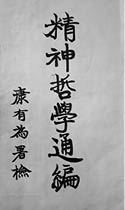 精神哲學通編
康有為署檢